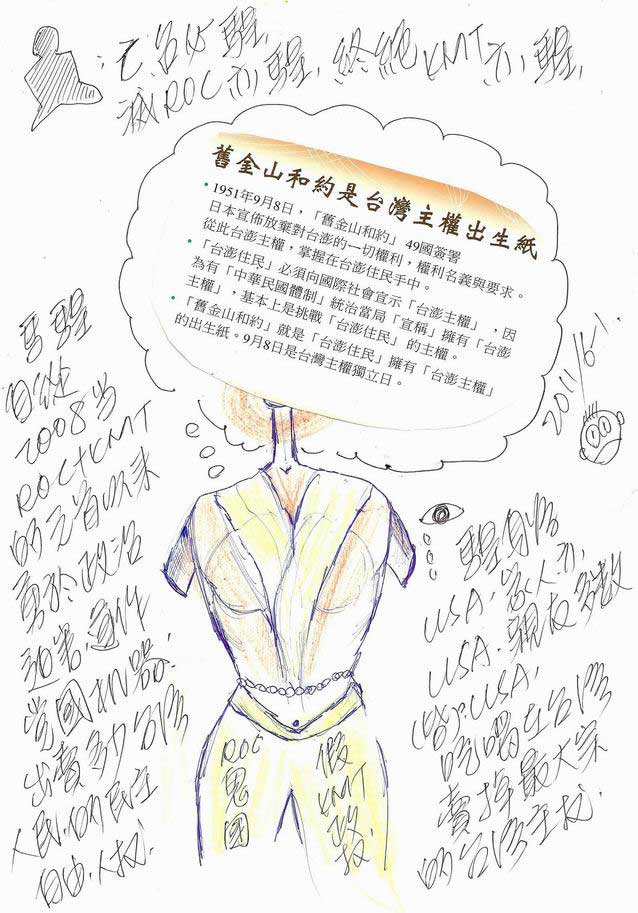 滅ROC亦騜, 終絕KMT亦騜,
舊金山和約是台灣主權出生紙
• 1951年9月8日，「舊金山和約」 49國簽署
日本宣佈放棄對台澎的一切權利，權利名義與要求。
從此台澎主權，掌握在台澎住民手中。
• 「台澎住民」必須向國際社會宣示「台澎主權」，因
為有「中華民國體制」統治當局「宣稱」擁有「台澎
主權」，基本上是挑戰「台澎住民」的主權。
• 「舊金山和約」就是「台澎住民」擁有「台澎主權」
的出生紙。9月8日是台灣主權獨立日。
2011/6-1.
騜
自從
2008當
ROC+KMT
的元首以來
勇於政治
迫害.
党國機器:
出賣多少台灣
人民.的民主
自由.人权.
騜自將
USA.家人亦
USA.親友多数
(皆).USA,
吃喝在台湾
賣掉最大宗
的台湾主权.
ROC
鬼
國
假
KMT
政